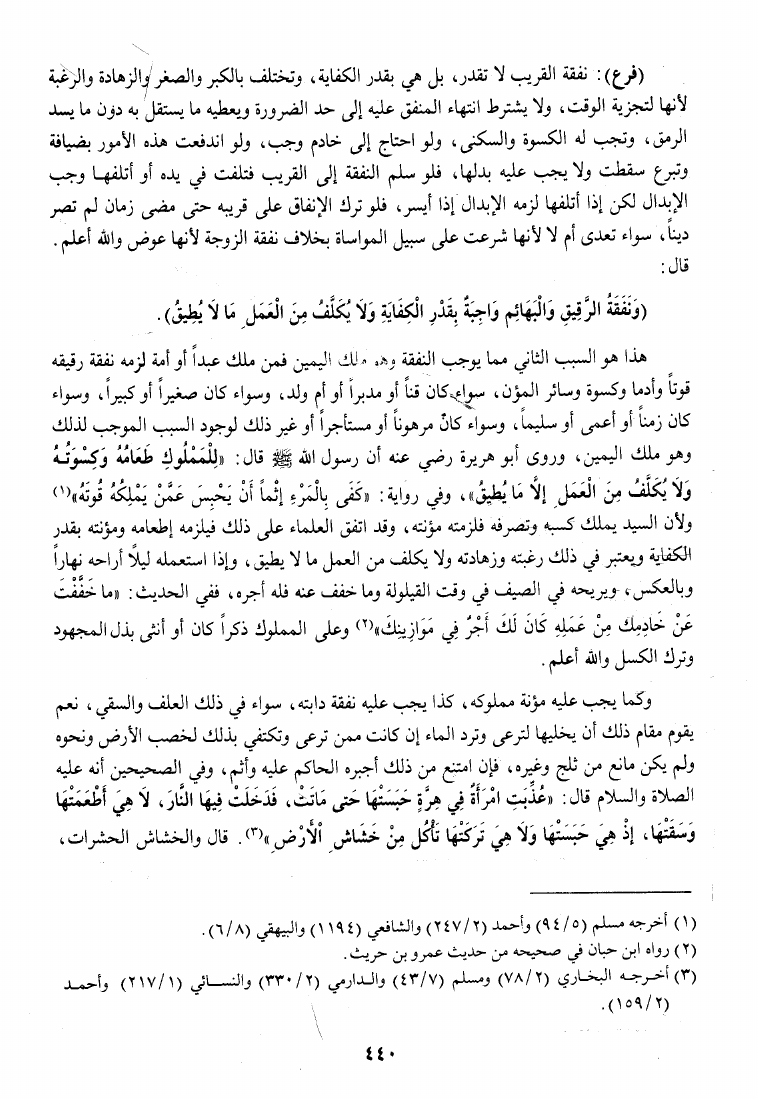 (فرع): نفقة القريب لا تقدر، بل هي بقدر الكفاية، وتختلف بالكبر والصغر والزهادة والرغبة
لأنها لتجزية الوقت، ولا يشترط انتهاء المنفق عليه إلى حد الضرورة ويعطيه ما يستقل به دون ما يسد
الرمق، وتجب له الكسوة والسكنى، ولو احتاج إلى خادم وجب، ولو اندفعت هذه الأمور بضيافة
وتبرع سقطت ولا يجب عليه بدلها، فلو سلم النفقة إلى القريب فتلفت في يده أو أتلفها وجب
الإبدال لكن إذا أتلفها لزمه الإبدال إذا أيسر، فلو ترك الإنفاق على قريبه حتى مضى زمان لم تصر
ديناً، سواء تعدى أم لا لأنها شرعت على سبيل المواساة بخلاف نفقة الزوجة لأنها عوض والله أعلم.
قال:
(وَنَفَقَةُ الرَّقِيقِ وَالْبَهَائِمِ وَاجِبَةٌ بِقَدْرِ الْكِفَايَةِ وَلَا يُكَلَّفُ مِنَ الْعَمَلِ مَا لَا يُطِيقُ).
هذا هو السبب الثاني مما يوجب النفقة وهو ملك اليمين فمن ملك عبداً أو أمة لزمه نفقة رقيقه
قوتاً وأدما وكسوة وسائر المؤن، سواء كان قناً أو مدبراً أو أم ولد، وسواء كان صغيراً أو كبيراً، وسواء
كان زمناً أو أعمى أو سليماً، وسواء كان مرهوناً أو مستأجراً أو غير ذلك لوجود السبب الموجب لذلك
وهو ملك اليمين، وروى أبو هريرة رضي عنه أن رسول الله ﷺ قال: «لِلْمَمْلُوكِ طَعَامُهُ وَكِسْوَتُهُ
وَلَا يُكَلَّفُ مِنَ الْعَمَلِ إِلَّا مَا يُطِيقُ»، وفي رواية: «كَفَى بِالْمَرْءِ إِثْماً أَنْ يَحْبِسَ عَمَّنْ يَمْلِكُهُ قُوتَهُ»(١)
ولأن السيد يملك كسبه وتصرفه فلزمته مؤنته، وقد اتفق العلماء على ذلك فيلزمه إطعامه ومؤنته بقدر
الكفاية ويعتبر في ذلك رغبته وزهادته ولا يكلف من العمل ما لا يطيق، وإذا استعمله ليلاً أراحه نهاراً
وبالعكس، ويريحه في الصيف في وقت القيلولة وما خفف عنه فله أجره، ففي الحديث: «ما خَفَّفْتَ
عَنْ خَادِمِكَ مِنْ عَمَلِهِ كَانَ لَكَ أَجْرٌ فِي مَوَازِينِكَ»(٢) وعلى المملوك ذكراً كان أو أنثى بذل المجهود
وترك الكسل والله أعلم.
وكما يجب عليه مؤنة مملوكه، كذا يجب عليه نفقة دابته، سواء في ذلك العلف والسقي، نعم
يقوم مقام ذلك أن يخليها لترعى وترد الماء إن كانت ممن ترعى وتكتفي بذلك لخصب الأرض ونحوه
ولم يكن مانع من ثلج وغيره، فإن امتنع من ذلك أجبره الحاكم عليه وأثم، وفي الصحيحين أنه عليه
الصلاة والسلام قال: «عُذِّبَتِ امْرَأَةٌ فِي هِرَّةٍ حَبَسَتْهَا حَتى مَاتَتْ، فَدَخَلَتْ فِيهَا النَّارَ، لَا هِيَ أَطْعَمَتْهَا
وَسَقَتْهَا، إِذْ هِيَ حَبَسَتْهَا وَلَا هِيَ تَرَكَتْهَا تَأْكُلُ مِنْ خَشَاشِ الْأَرْضِ»(٣). قال والخشاش الحشرات،
(١) أخرجه مسلم (٩٤/٥) وأحمد (٢٤٧/٢) والشافعي (١١٩٤) والبيهقي (٦/٨).
(٢) رواه ابن حبان في صحيحه من حديث عمرو بن حريث.
(٣) أخرجه البخاري (٧٨/٢) ومسلم (٤٣/٧) والدارمي (٣٣٠/٢) والنسائي (٢١٧/١) وأحمد
(١٥٩/٢).
٤٤٠